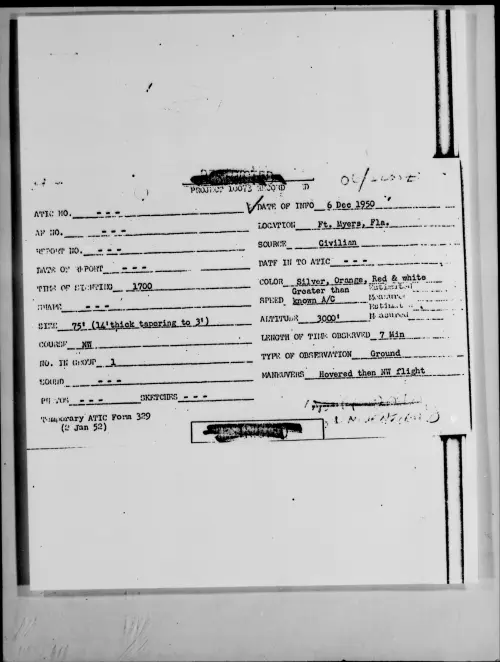 PROJECT 10073 RECORD
ATIC NO. - - -
DATE OF INFO 6 Dec 1950
AF NO. - - -
LOCATION Ft. Myers, Fla.
REPORT NO. - - -
SOURCE Civilian
DATE OF REPORT - - -
DATE IN TO ATIC - - -
TIME OF SIGHTING 1700
COLOR Silver, Orange, Red & white
SHAPE - - -
SPEED Greater than known A/C Estimated Measured
SIZE 75' (14'thick tapering to 3')
ALTITUDE 3000' Estimated Measured
COURSE NW
LENGTH OF TIME OBSERVED 7 Min
NO. IN GROUP 1
TYPE OF OBSERVATION Ground
SOUND - - -
MANEUVERS Hovered then NW flight
PHOTOS - - - SKETCHES - - -
Temporary ATIC Form 329
(2 Jan 52)